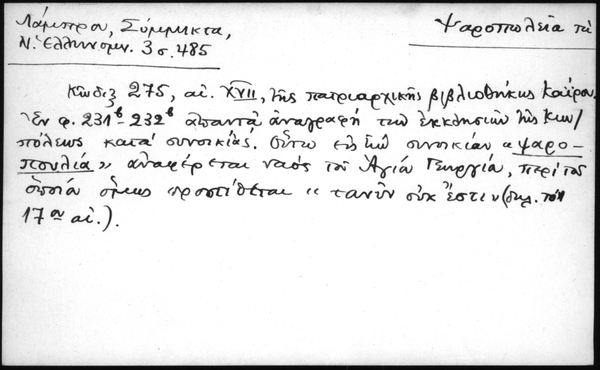 Λάμπρου, Σύμμικτα,
Ν. Ἑλληνομν. 3 σ. 485
Ψαροπολεῖα τὰ
Κῶδιξ 275, αἰ. XVII, τῆς πατριαρχικῆς βιβλιοθήκης Καΐρου.
Ἐν φ. 231β-232β ἀπαντᾷ ἀναγραφὴ τῶν ἐκκλησιῶν τῆς Κων/
πόλεως κατὰ συνοικίας. Οὕτω εἰς τὴν συνοικίαν «ψαρο-
πουλιά» ἀναφέρεται ναὸς τοῦ Ἁγίου Γεωργίου, περὶ τοῦ
ὁποίου ὅμως προστίθεται «τανῦν οὐκ ἔστιν» (δηλ. τὸν
17ον αἰ.).